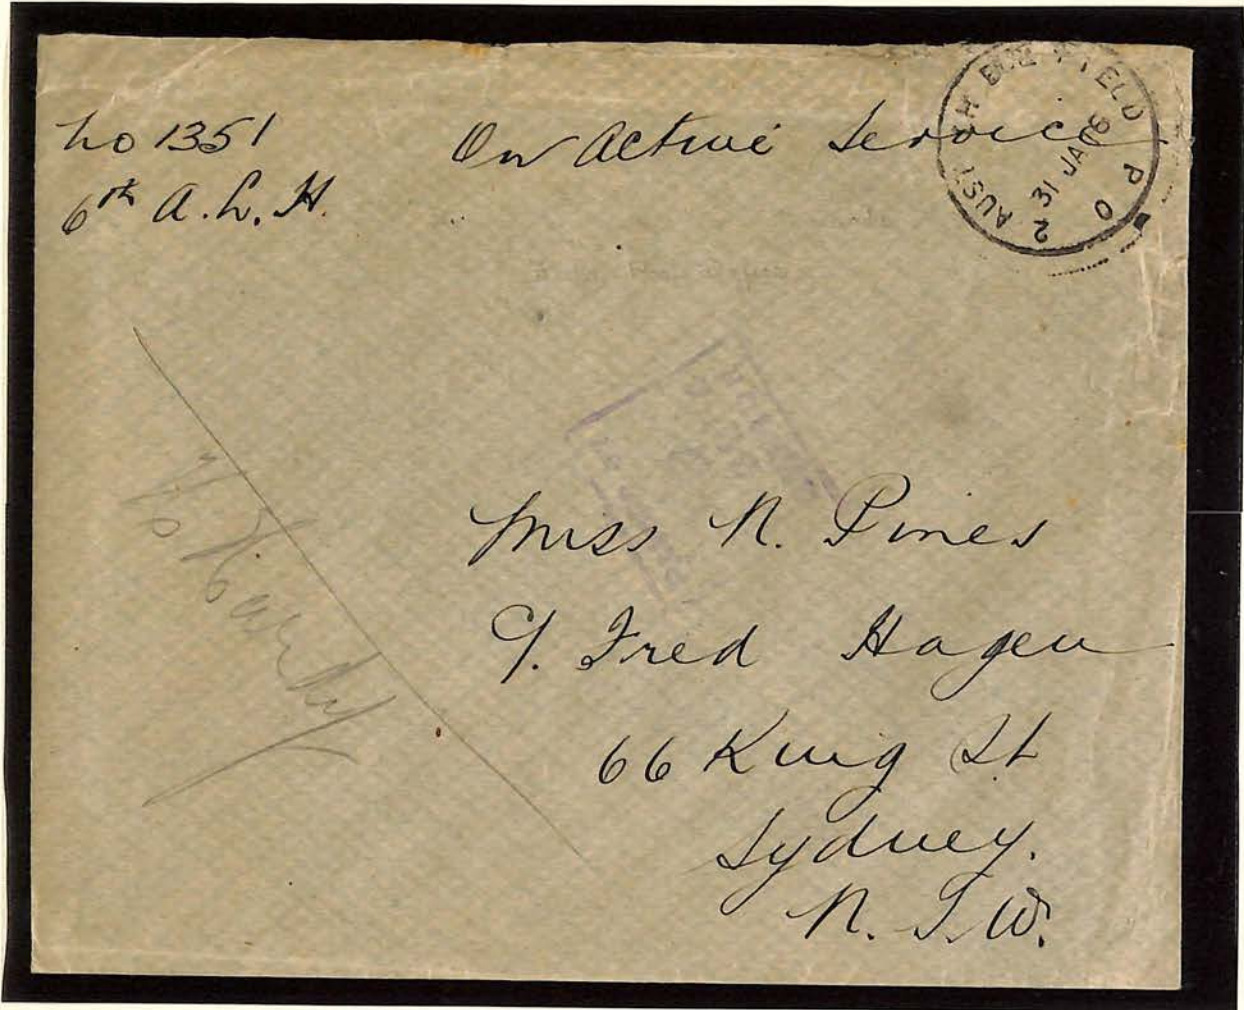 No 1351
6th A. L. H.
On Active Service
2 AUST L H BDE FIELD P O
31 JA 16
Miss N. Pines
C/. Fred Hagen
66 King St
Sydney.
N. S. W.
Hardy